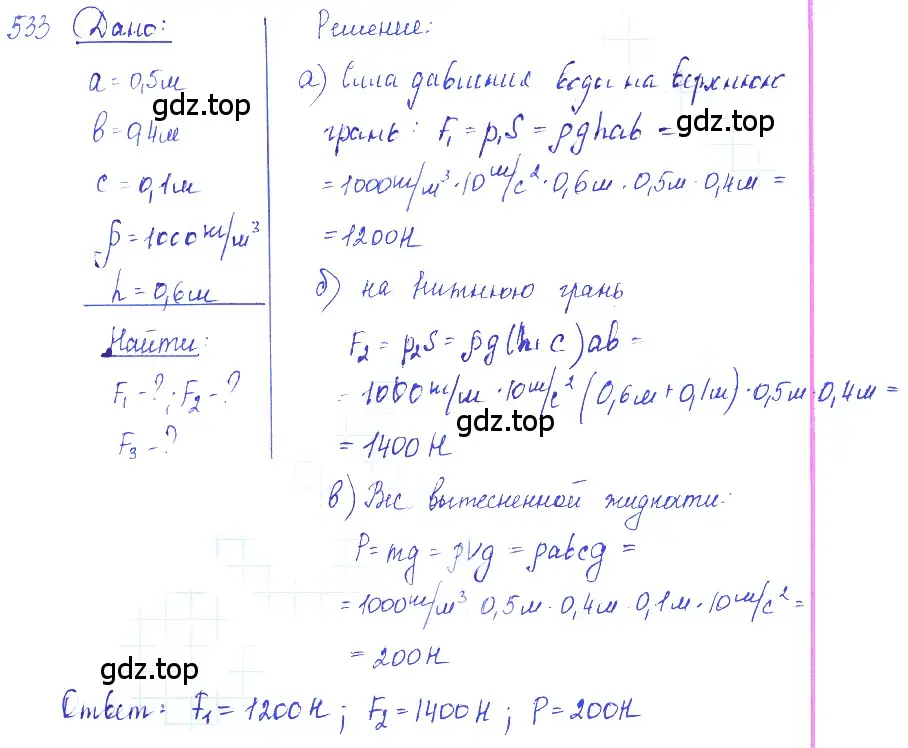 533 Дано:
a = 0,5м
gdz.top
b = 0,4м
c = 0,1м
ρ = 1000 кг/м³
h = 0,6м
Найти:
F₁ - ?; F₂ - ?
F₃ - ?
Решение:
а) Сила давления воды на верхнюю
gdz.top
грань: F₁ = p₁S = ρghab =
= 1000 кг/м³ · 10 м/с² · 0,6м · 0,5м · 0,4м =
= 1200Н
б) на нижнюю грань
F₂ = p₂S = ρg(h+c)ab =
= 1000 кг/м · 10 м/с² (0,6м + 0,1м) · 0,5м · 0,4м =
gdz.top
= 1400 Н
в) Вес вытесненной жидкости:
P = mg = ρVg = ρabcg =
= 1000 кг/м³ 0,5м · 0,4м · 0,1м · 10 м/с² =
= 200Н
gdz.top
Ответ: F₁ = 1200Н; F₂ = 1400Н; P = 200Н